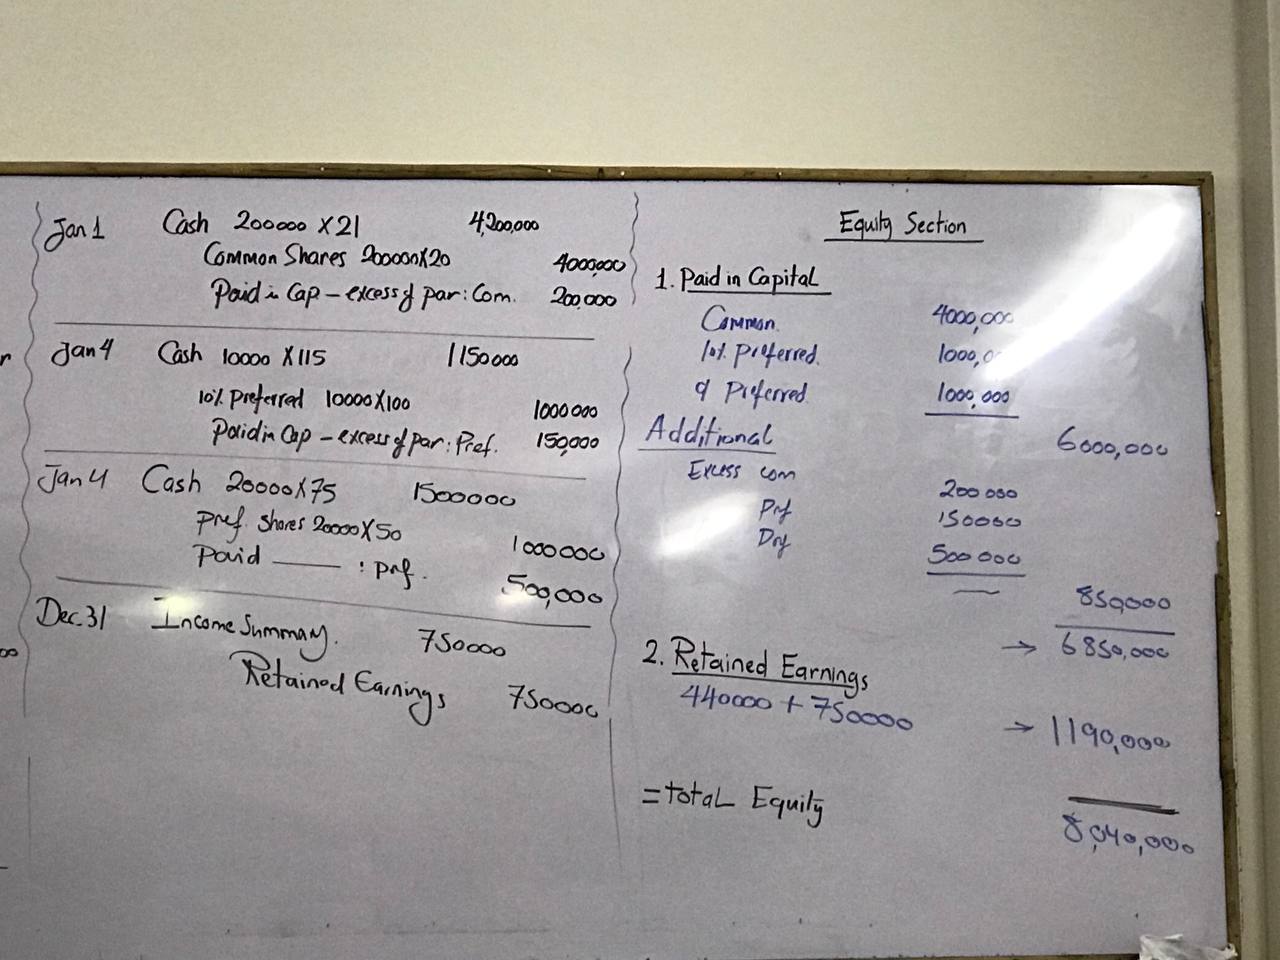 Jan 1 Cash 200000 X 21 4,200,000
Common Shares 200000X20 4000,000
Paid in Cap - excess of par : Com. 200,000
Jan 4 Cash 10000 X 115 1150000
10% Preferred 10000X100 1000000
Paid in Cap - excess of par : Pref. 150,000
Jan 4 Cash 20000X75 1500000
Pref. Shares 20000X50 1000000
Paid : prf. 500,000
Dec. 31 Income Summary. 750000
Retained Earnings 750000
Equity Section
1. Paid in Capital
Common 4000,000
10% Preferred. 1000,0
9 Preferred 1000,000
Additional 6000,000
Excess com 200 000
Prf 150000
500 000
850,000
→ 6850,000
2. Retained Earnings
440000 + 750000 → 1190,000
= total Equity
8,040,000